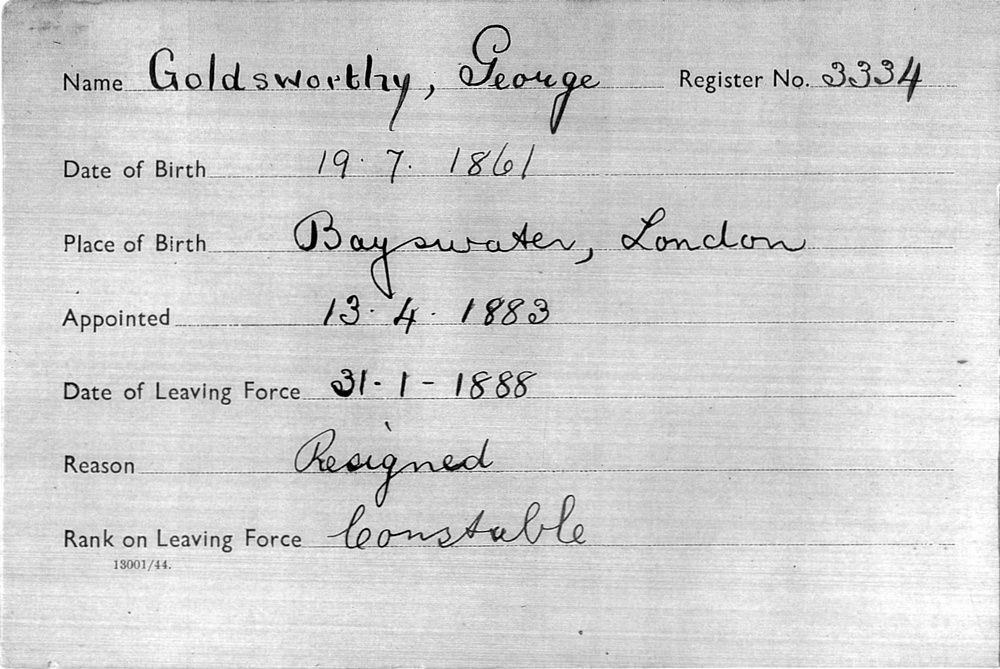 Name Goldsworthy, George Register No. 3334
Date of Birth 19. 7. 1861
Place of Birth Bayswater, London
Appointed 13. 4. 1883
Date of Leaving Force 31. 1 - 1888
Reason Resigned
Rank on Leaving Force Constable
13001/44.